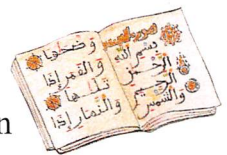 بسم الله
الرحمن
الرحيم
والشمس
وضحاها
والقمر إذا
تلاها
والنهار إذا
n